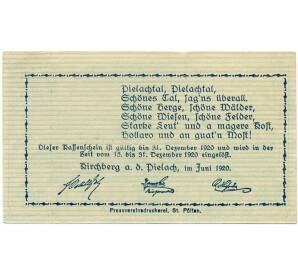 Pielachtal, Pielachtal,
Schönes Tal, sag'ns überall.
Schöne Berge, schöne Wälder,
Schöne Wiesen, schöne Felder,
Starke Leut' und a magere Kost,
Hollaro und an guat'n Most!
Dieser Kassenschein ist gültig bis 31. Dezember 1920 und wird in der
Zeit vom 15. bis 31. Dezember 1920 eingelöst.
Kirchberg a. d. Pielach, im Juni 1920.
Pressvereinsdruckerei, St. Pölten.